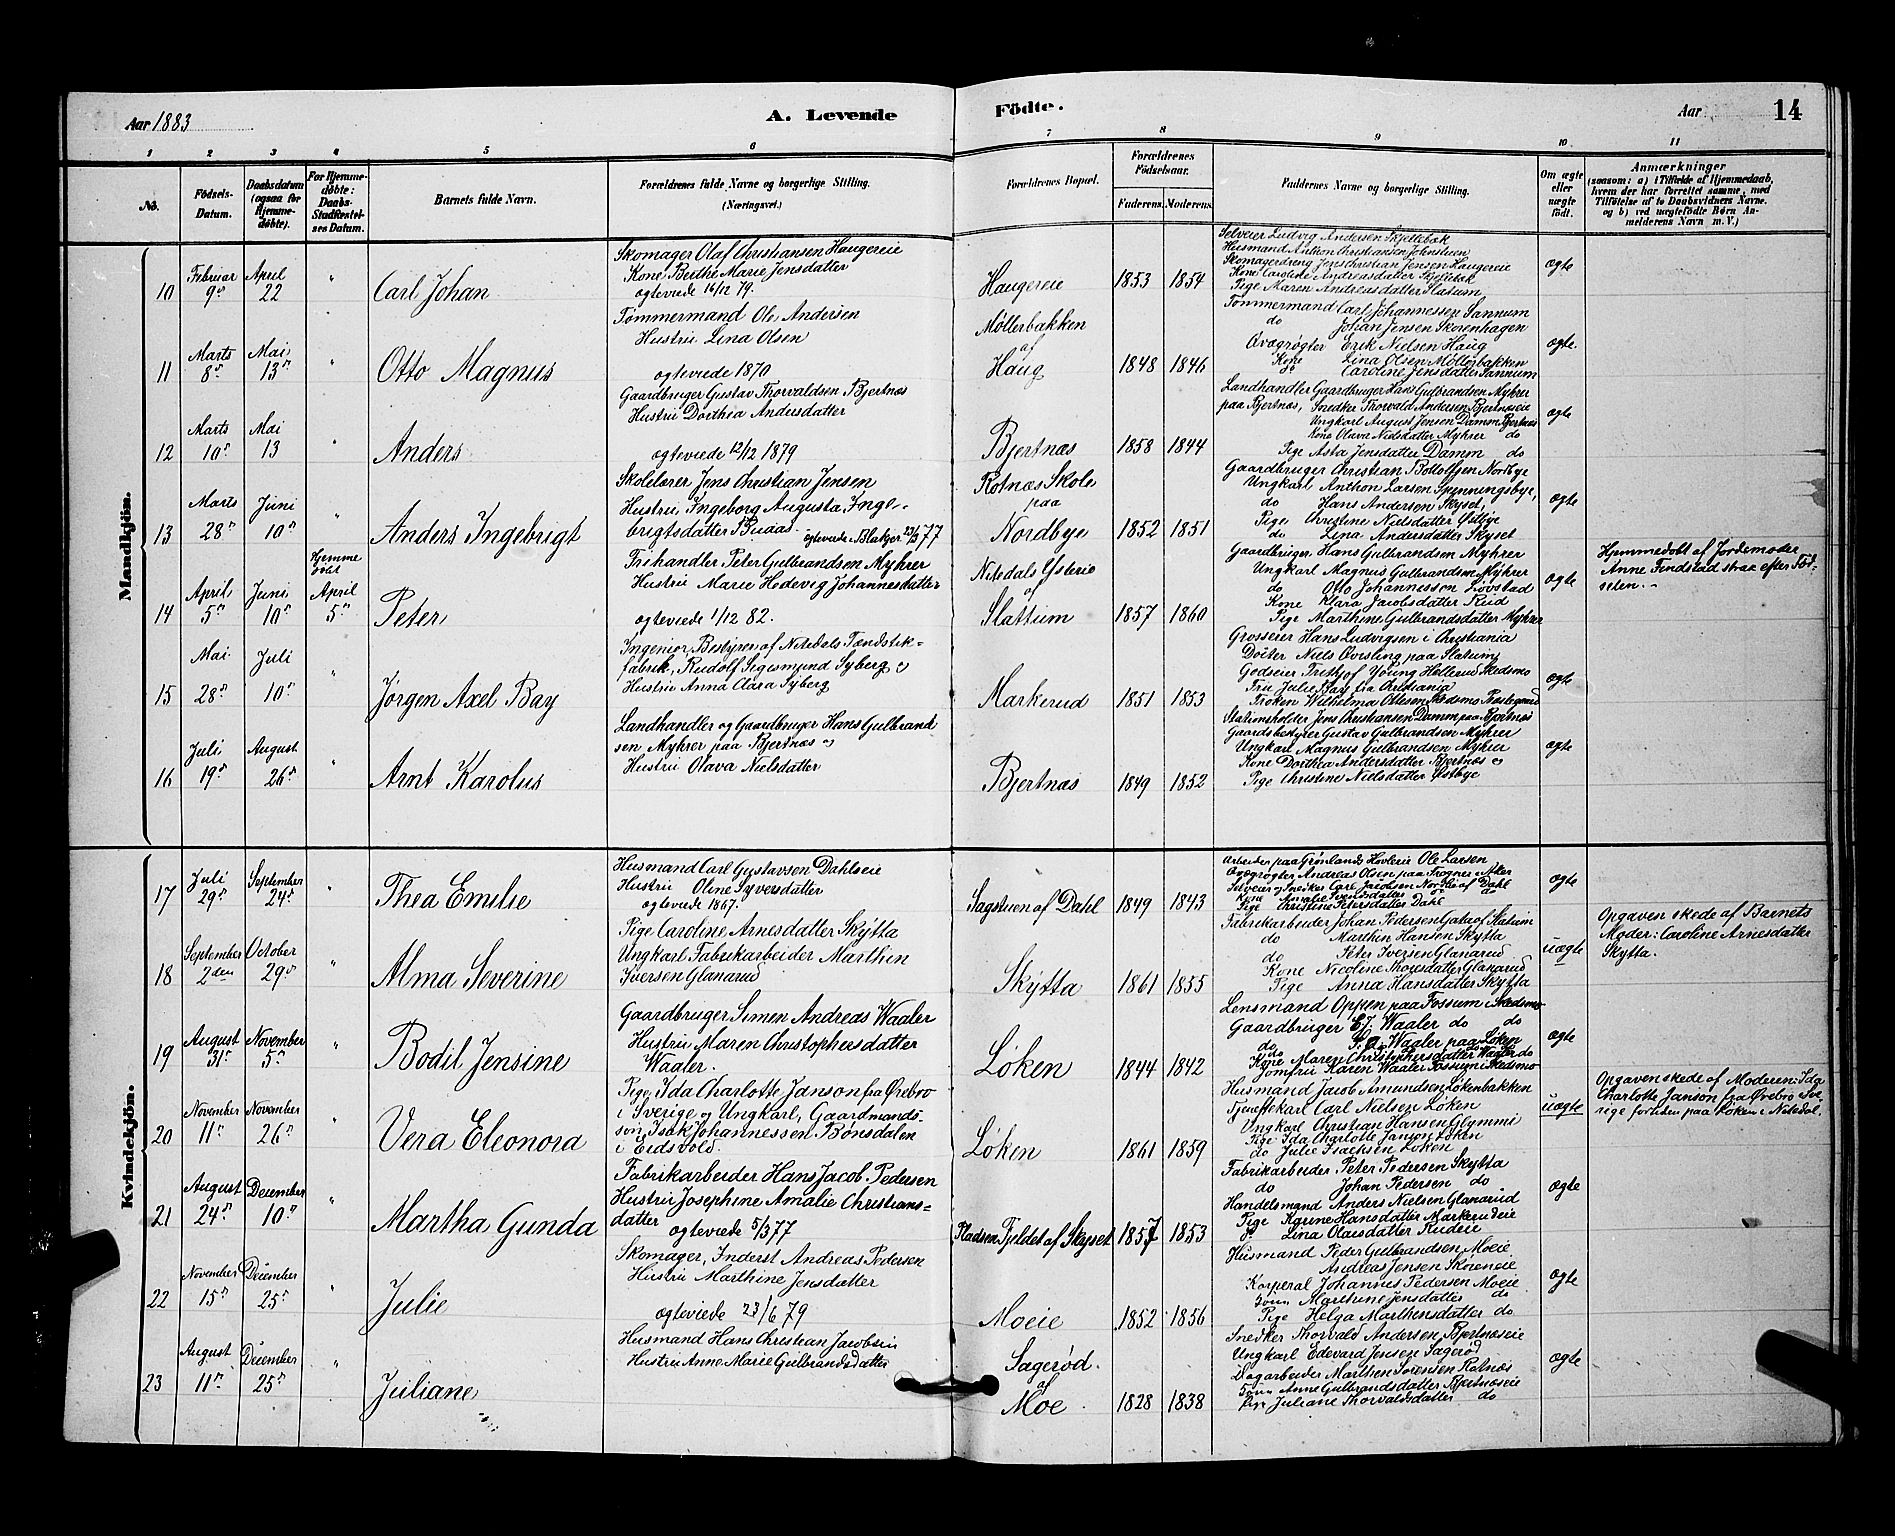 Aar 1883
A. Levende
Födte.
Aar
14
1 2 3 4 5 6 7 8 9 10 11
No.
Födsels-
Datum.
Daabsdatum
(ogsaa for
Hjemme-
døbte).
For Hjemme-
døbte:
Daabs-
Stadfæstel-
ses Datum.
Barnets fulde Navn.
Forældrenes fulde Navne og borgerlige Stilling.
(Næringsvei.)
Forældrenes Bopæl.
Forældrenes
Födselsaar.
Faderens. Moderens.
Faddernes Navne og borgerlige Stilling.
Om ægte
eller
uægte
født.
Anmærkninger
(saasom: a) i Tilfælde af Hjemmedaab,
hvem der har forrettet samme, med
Tilføielse af to Daabsvidners Navne.
og b) ved uægtefødte Børn An-
melderens Navn m. V.)
Mandkjön.
10
Februar
9de
April
22
"
Carl Johan
Skomager Olaf Christiansen Haugereie
Kone Berthe Marie Jensdatter
ægteviede 16/12 79.
Haugereie
1853 1854
Selveier Ludvig Andersen Skjellebæk
Husmand Anthon Christiansen Johnstuen
Skomagerdreng Jens Christian Jensen Haugereie
Kone Caroline Andreasdatter Skjellebæk
Pige Maren Andreasdatter Slatum
ægte
11
Marts
8de
Mai
13de
"
Otto Magnus
Tømmermand Ole Andersen
Hustru Lina Olsen
ægteviede 1870
Møllerbakken
af
Haug
1848 1846
Tømmermand Carl Johannessen Sannum
do Johan Jensen Skorenhagen
Qvægrøgter Erik Nielsen Haug
Kone Lina Olsen Møllerbakken
do Caroline Jensdatter Sannum
ægte.
12
Marts
10de
Mai
13
"
Anders
Gaardbruger Gustav Thorvaldsen Bjertnæs
Hustru Dorthea Andersdatter
ægteviede 12/12 1879
Bjertnæs
1858 1844
Landhandler Gaardbruger Hans Gulbrandsen Myhrer
paa Bjertnæs, Snedker Thorvald Andersen Bjertnæseie
Ungkarl August Jensen Damm Bjertnæs
Kone Olava Nielsdatter Myhrer do
Pige Asta Jensdatter Damm do
ægte
13
Marts
28de
Juni
10de
"
Anders Ingebrigt
Skolelærer Jens Christian Jensen
Hustru Ingeborg Augusta Inge-
brigtsdatter Buaas.
Rotnæs Skole
paa
Nordbye
1852 1851
Gaardbruger Christian Bottolfsen Nordbye
Ungkarl Anthon Larsen Spenningsbye,
do Hans Andersen Skyset,
Pige Christine Nielsdatter Østbye
do Lina Andersdatter Skyset
ægte
14
April
5de
Juni
10de
Hjemme
døbt
April
5de
Peter
Frihandler Peter Gulbrandsen Myhrer
Hustru Marie Hedevig Johannesdatter
ægteviede 1/12 82.
Nitedals Ysterie
af
Slattum
1857 1860
Gaardbruger Hans Gulbrandsen Myhrer
Ungkarl Magnus Gulbrandsen Myhrer
do Otto Johannessen Lövstad
Kone Klara Jacobsdatter Rud
Pige Marthine Gulbrandsdatter Myhrer
ægte
Hjemmedøbt af Jordemoder
Anne Finstad strax efter Föd-
selen.
15
Mai
28de
Juli
10de
"
Jørgen Axel Bay
Ingeniør, Bestyrer af Nitedals Tændstik-
fabrik, Rudolf Sigismund Syberg og
Hustru Anna Clara Syberg
Markerud
1851 1853
Grosserer Hans Ludvigsen i Christiania
Docter Niels Qvisling paa Slatum
Godseier Fritjof Young Hellerud Skedsmo
Fru Julie Bay fra Christiania
Frøken Wilhelmina Ottesen Skedsmo Præstegaard
ægte
16
Juli
19de
August
26de
"
Arnt Karolus
Landhandler og Gaardbruger Hans Gulbrand
sen Myhrer paa Bjertnæs og
Hustru Olava Nielsdatter
Bjertnæs
1849 1852
Stationsholder Jens Christiansen Damm paa Bjertnæs
Gaardsbestyrer Gustav Gulbrandsen Myhrer
Ungkarl Magnus Gulbrandsen Myhrer
Kone Dorthea Andersdatter Bjertnæs og
Pige Christine Nielsdatter Østbye
ægte
Kvindekjön.
17
Juli
29de
September
24de
"
Thea Emilie
Husmand Carl Gustavsen Dahlseie
Hustru Oline Syversdatter
ægteviede 1867.
Sagstuen af Dahl
1849 1843
Arbeider paa Grønlands Høvlerie Ole Larsen
Qvægrøgter Andreas Olsen paa Frogner Aker
Selveier og Snedker Carl Jacobsen Nordlie af Dahl
Kone Amalie Svendsdatter do
Pige Christine Petersdatter Dahl
ægte
18
September
2den
October
29de
"
Alma Severine
Pige Caroline Arnesdatter Skÿtta
Ungkarl Fabrikarbeider Marthin
Iversen Glanarud
Skÿtta
1861 1855
Fabrikarbeider Johan Pedersen Gata af Slatum
do Marthin Hansen Skÿtta
do Peter Iversen Glanarud
Kone Nicoline Thoresdatter Glanarud
Pige Anna Hansdatter Skÿtta
uægte
Opgaven skede af Barnets
Moder: Caroline Arnesdatter
Skÿtta.
19
August
31de
November
5de
"
Bodil Jensine
Gaardbruger Simen Andreas Waaler
Hustru Maren Christophersdatter
Waaler.
Løken
1844 1842
Lensmand Oppen paa Fossum i Skedsmo
Gaardbruger E.J. Waaler do do
do S.A. Waaler paa Løken
Kone Maren Christophersdatter Waaler do
Jomfru Karen Waaler Fossum i Skedsmo
ægte
20
November
11de
November
26de
"
Vera Eleonora
Pige, Ida Charlotte Janson fra Ørebro
i Sverige og Ungkarl, Gaardmands-
søn, Isak Johannessen Bønsdalen
i Eidsvold.
Løken
1861 1859
Husmand Jacob Amundsen Løkenbakken
Tjenestekarl Carl Nielsen Løken
Ungkarl Christian Hansen Glymmi
Pige Ida Charlotte Janson Løken
do Julie Isachsen Løken
uægte
Opgaven skede af Moderen: Ida
Charlotte Janson fra Ørebro Sve-
rige fortiden paa Løken i Nitedal.
21
August
24de
December
10de
"
Martha Gunda
Fabrikarbeider Hans Jacob Pedersen
Hustru Josephine Amalie Christians-
datter
ægteviede 5/3 77
Pladsen Fjeldet af Skyset
1857 1853
Fabrikarbeider Peter Pedersen Skytta
do Johan Pedersen do
Handelsmand Anders Nielsen Glanarud
Pige Karine Hansdatter Markerudeie
do Lina Olausdatter Rudeie
ægte
22
November
15de
December
25de
"
Julie
Skomager, Inderst Andreas Pedersen
Hustru Marthine Jensdatter
ægteviede 23/6 79
Moeie
1852 1856
Husmand Peder Gulbrandsen Moeie
Andreas Jensen Skoreneie
Korperal Johannes Pedersen Moeie
Kone Marthine Jensdatter do
Pige Helga Marthinsdatter do
ægte
23
August
11de
December
25de
"
Juliane
Husmand Hans Christian Jacobsen
Hustru Anne Marie Gulbrandsdatter
Sagerød
af
Moe
1828 1838
Snedker Thorvald Andersen Bjertnæseie
Ungkarl Edevard Jensen Sagerød
Dagarbeider Marthin Sørensen Rotnæs
Kone Anne Gulbrandsdatter Bjertnæseie
Pige Juliane Thorvaldsdatter do
ægte